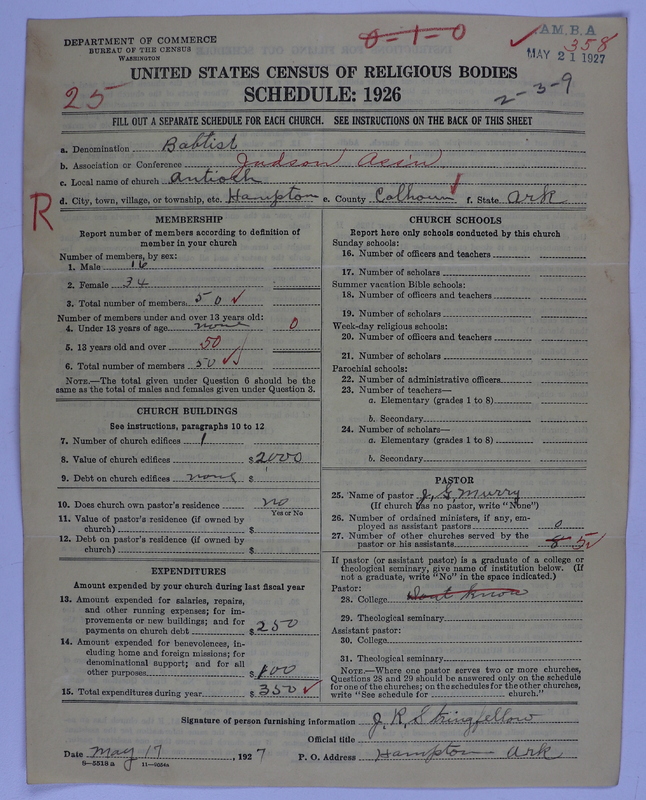 DEPARTMENT OF COMMERCE
BUREAU OF THE CENSUS
WASHINGTON
0-1-0
A.M.B.A
358
MAY 21 1927
UNITED STATES CENSUS OF RELIGIOUS BODIES
25
SCHEDULE: 1926
2-3-9
FILL OUT A SEPARATE SCHEDULE FOR EACH CHURCH. SEE INSTRUCTIONS ON THE BACK OF THIS SHEET
a. Denomination Babtist
b. Association or Conference Judson Ass'n
c. Local name of church Antioch
d. City, town, village, or township, etc. Hampton e. County Calhoun f. State Ark
R
MEMBERSHIP
Report number of members according to definition of
member in your church
Number of members, by sex:
1. Male 16
2. Female 34
3. Total number of members 50
Number of members under and over 13 years old:
4. Under 13 years of age none 0
5. 13 years old and over 50
6. Total number of members 50
NOTE.—The total given under Question 6 should be the
same as the total of males and females given under Question 3.
CHURCH BUILDINGS
See instructions, paragraphs 10 to 12
7. Number of church edifices 1
8. Value of church edifices $2000
9. Debt on church edifices none $
10. Does church own pastor's residence no
Yes or No
11. Value of pastor's residence (if owned by
church) $
12. Debt on pastor's residence (if owned by
church) $
EXPENDITURES
Amount expended by your church during last fiscal year
13. Amount expended for salaries, repairs,
and other running expenses; for im-
provements or new buildings; and for
payments on church debt $250
14. Amount expended for benevolences, in-
cluding home and foreign missions; for
denominational support; and for all
other purposes $100
15. Total expenditures during year $350
CHURCH SCHOOLS
Report here only schools conducted by this church
Sunday schools:
16. Number of officers and teachers
17. Number of scholars
Summer vacation Bible schools:
18. Number of officers and teachers
19. Number of scholars
Week-day religious schools:
20. Number of officers and teachers
21. Number of scholars
Parochial schools:
22. Number of administrative officers
23. Number of teachers—
a. Elementary (grades 1 to 8)
b. Secondary
24. Number of scholars—
a. Elementary (grades 1 to 8)
b. Secondary
PASTOR
25. Name of pastor J. G. Murry
(If church has no pastor, write "None")
26. Number of ordained ministers, if any, em-
ployed as assistant pastors 0
27. Number of other churches served by the
pastor or his assistants 8 5
If pastor (or assistant pastor) is a graduate of a college or
theological seminary, give name of institution below. (If
not a graduate, write "No" in the space indicated.)
Pastor:
28. College Dont know
29. Theological seminary
Assistant pastor:
30. College
31. Theological seminary
NOTE.—Where one pastor serves two or more churches,
Questions 28 and 29 should be answered only on the schedule
for one of the churches; on the schedules for the other churches,
write "See schedule for church."
Signature of person furnishing information J. R. Stringfellow
Official title
Date May 17, 1927 P. O. Address Hampton Ark
9-5518 a